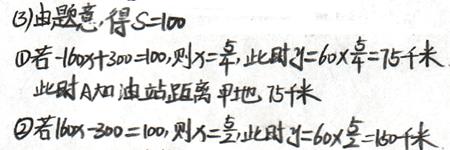 (3)由题意,得S=100
①若-160x+300=100,则x=5/4,此时y=60×5/4=75千米.
此时A加油站距离甲地75千米
②若160x-300=100,则x=5/2,此时y=60×5/2=150千米